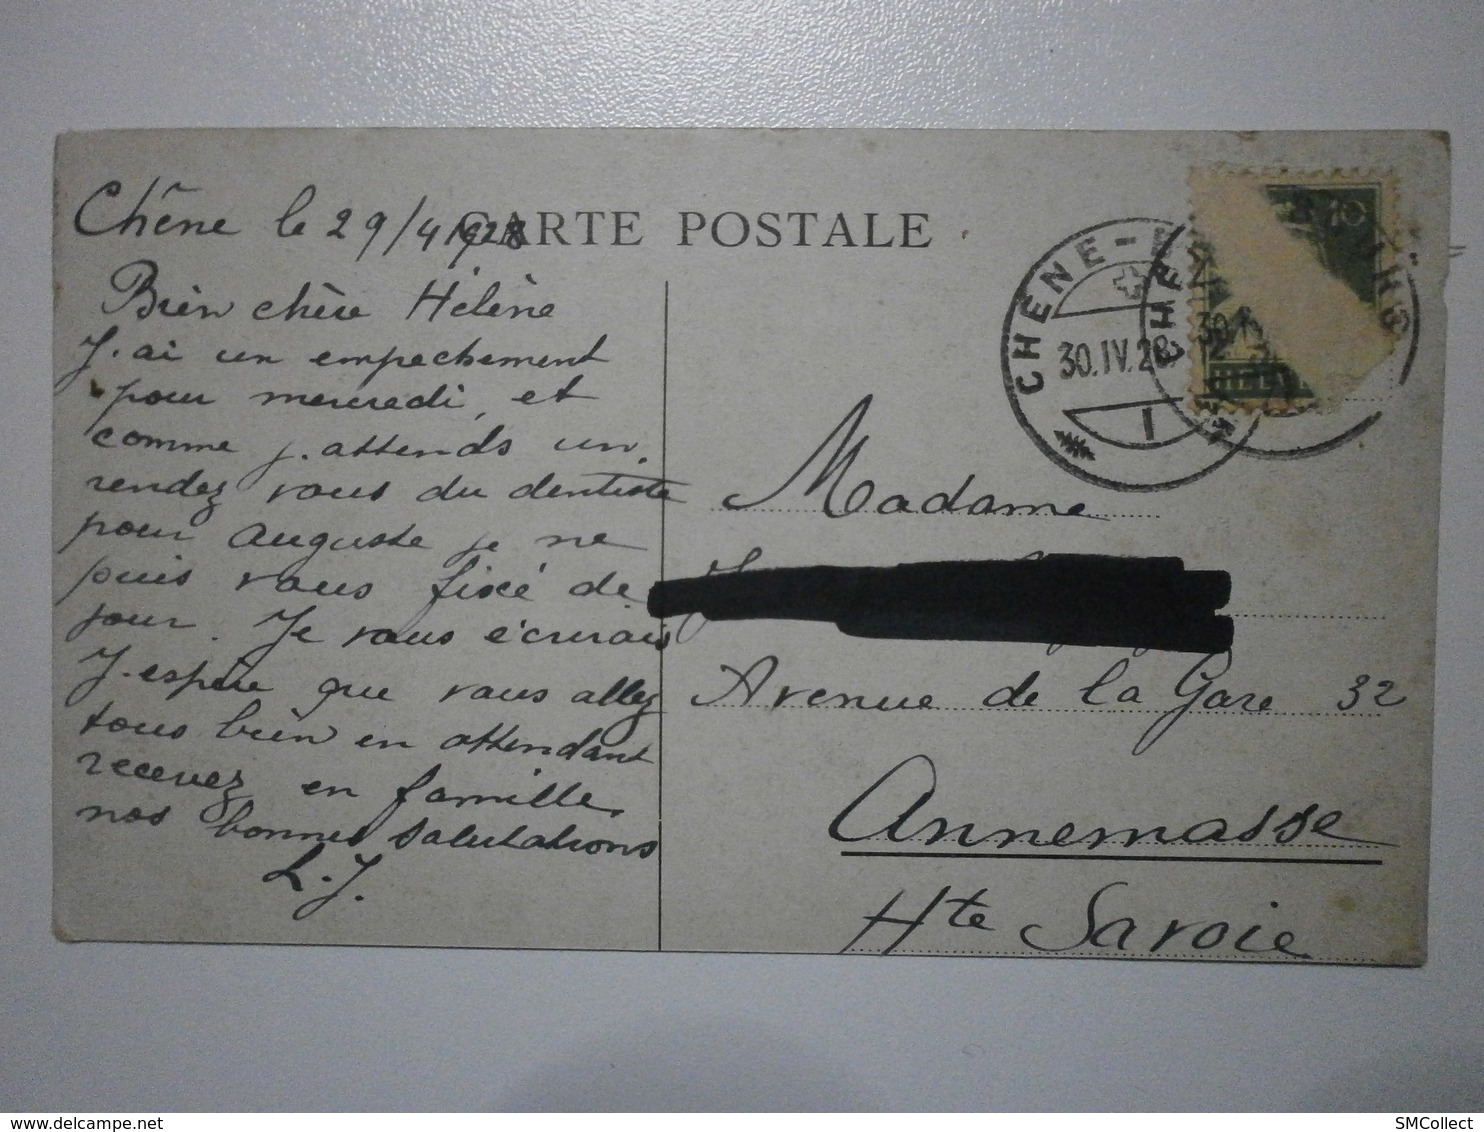 CARTE POSTALE
Chêne le 29/4 1928
Bien chère Hélène
J.ai un empechement
pour mercredi, et
comme j.attends un
rendez vous du dentiste
pour Auguste je ne
puis vous fixé de
jour. Je vous écrirais
J.espère que vous allez
tous bien en attendant
recevez en famille
nos bonnes salutations
L.J.
CHÊNE-
30.IV.28
1
10
30
Madame
Avenue de la Gare 32
Annemasse
Hte Savoie
delcampe.net
SMCollect